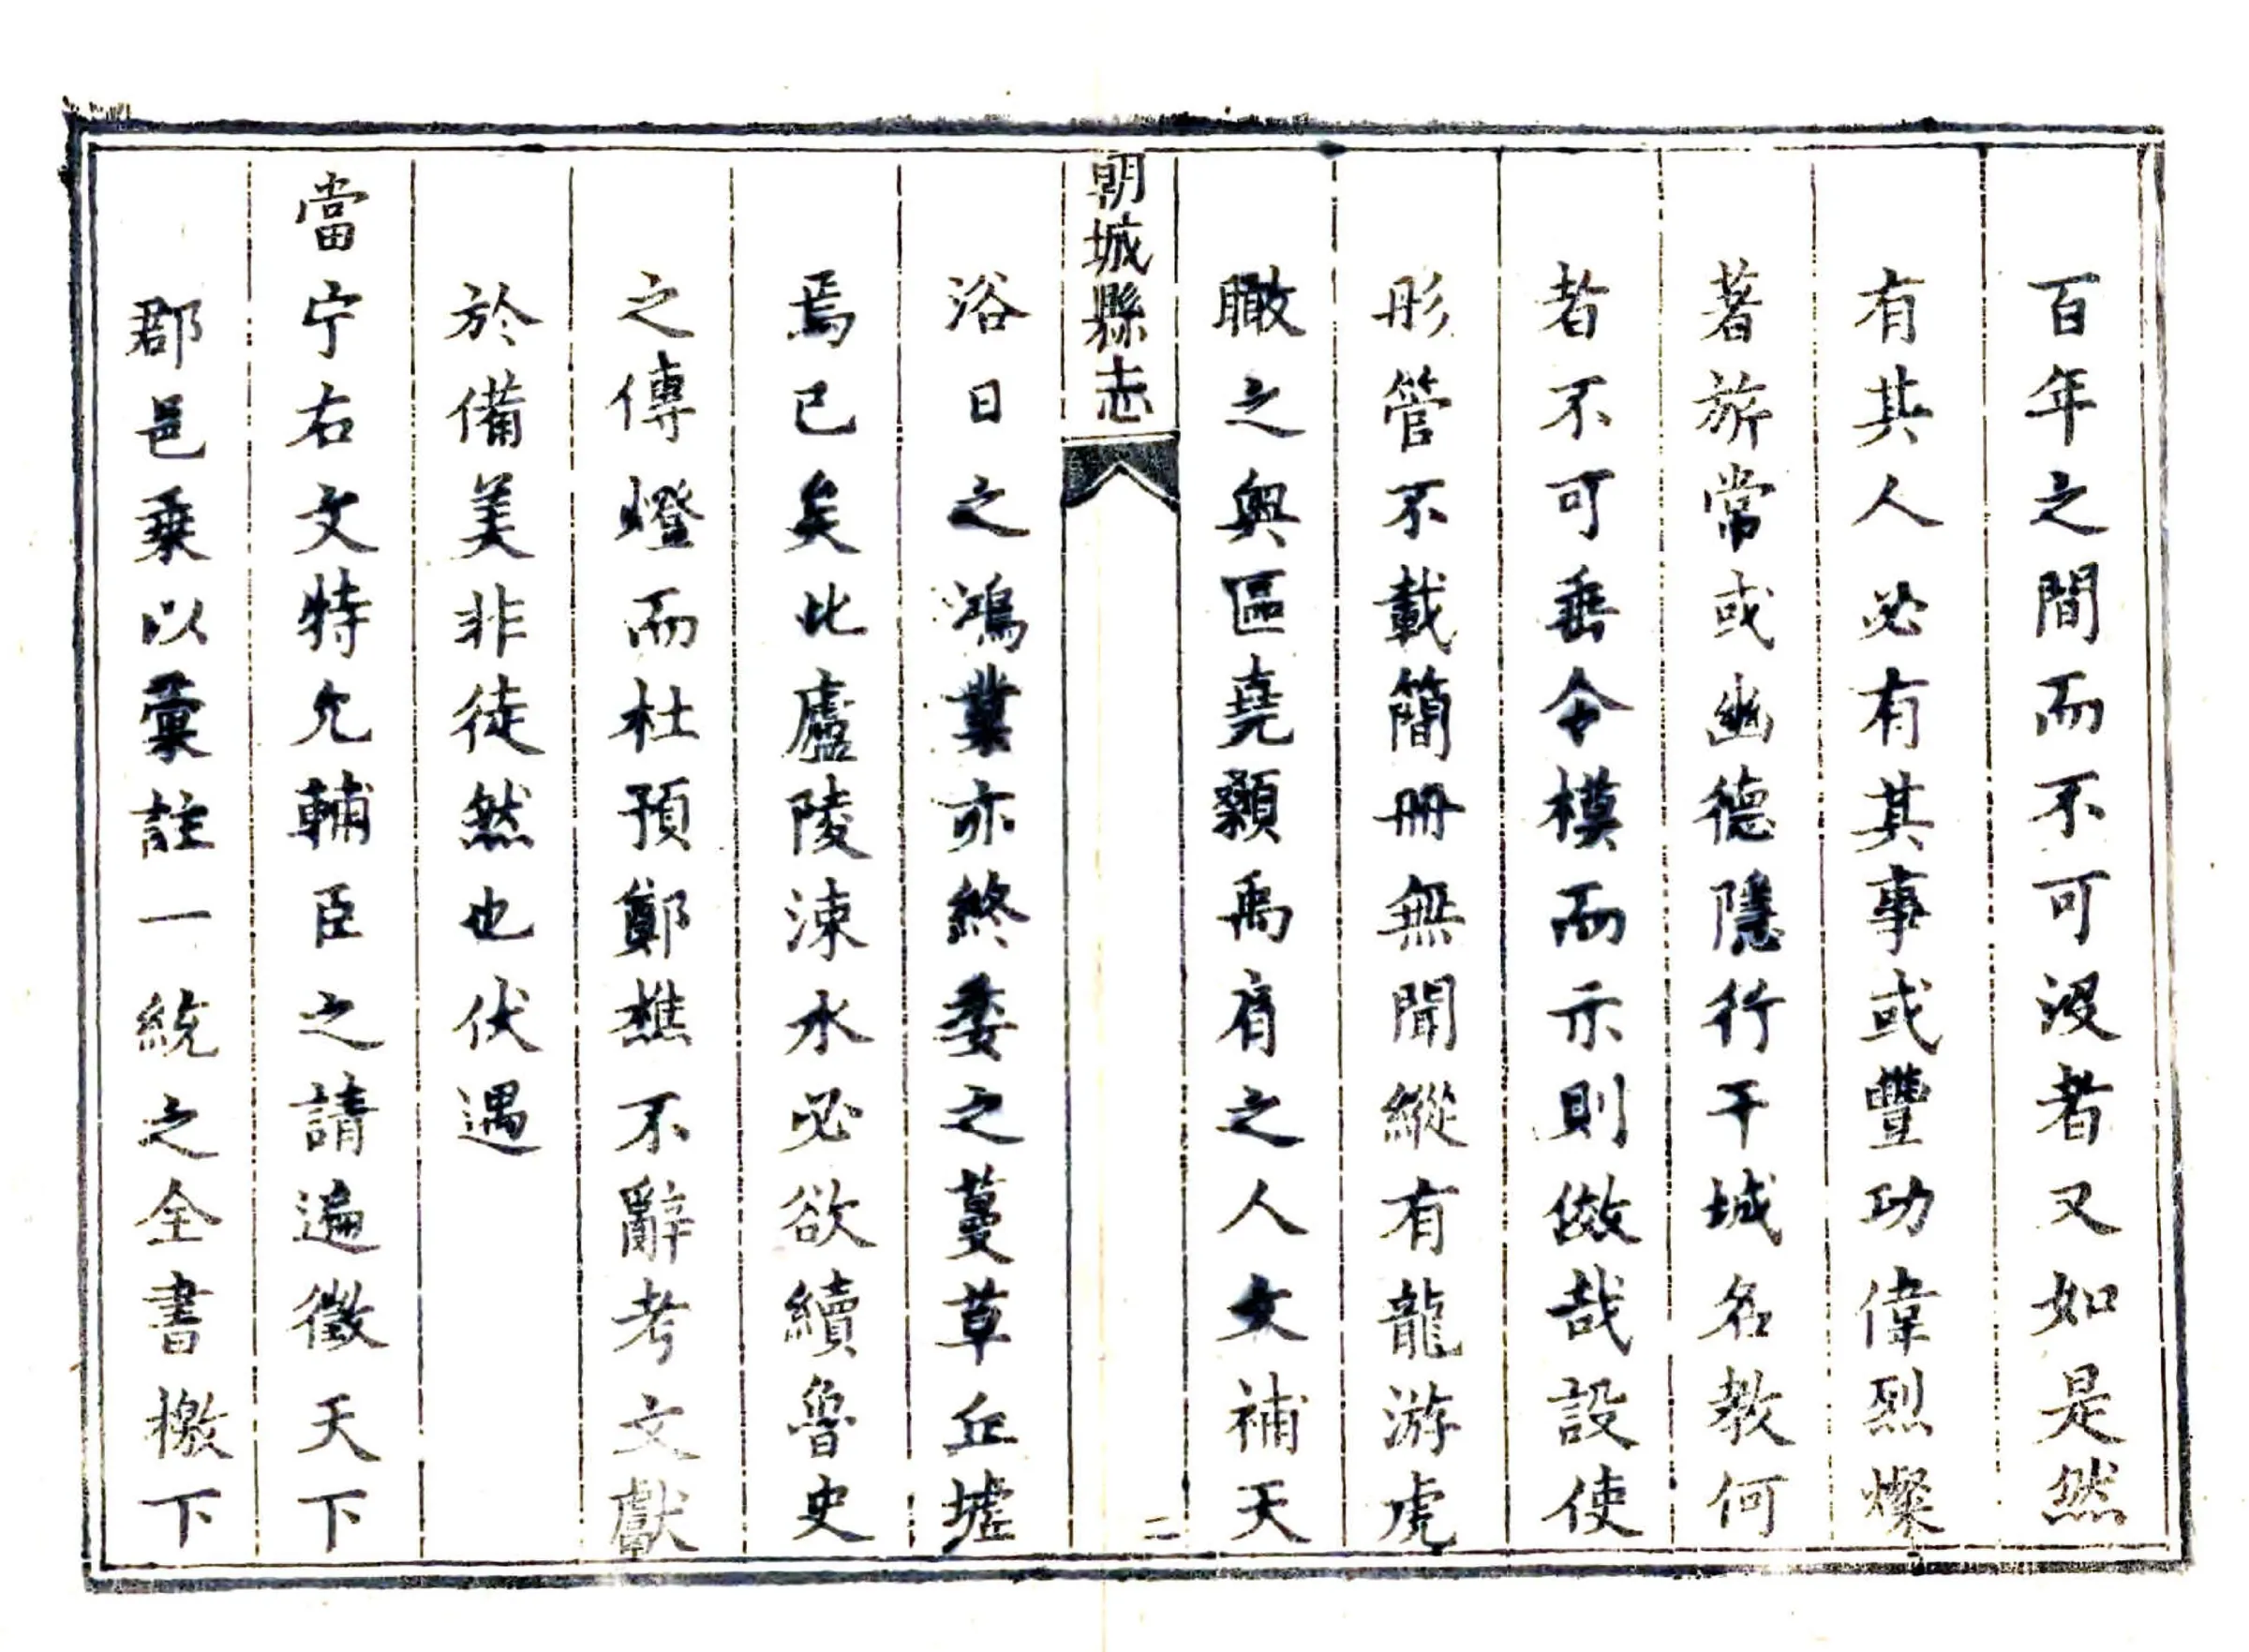 百年之間而不可沒者又如是然
有其人必有其事或豐功偉烈燦
著旂常或幽德隱行干城名教何
者不可垂令模而示則傚哉設使
彤管不載簡冊無聞縱有龍游虎
瞰之輿區堯顙禹肩之人文補天
朝城縣志
二
浴日之鴻業亦終委之蔓草丘墟
焉已矣此廬陵涑水必欲續魯史
之傳燈而杜預鄭樵不辭考文獻
於備美非徒然也伏遇
當宁右文特允輔臣之請遍徵天下
郡邑乗以彙註一統之全書檄下